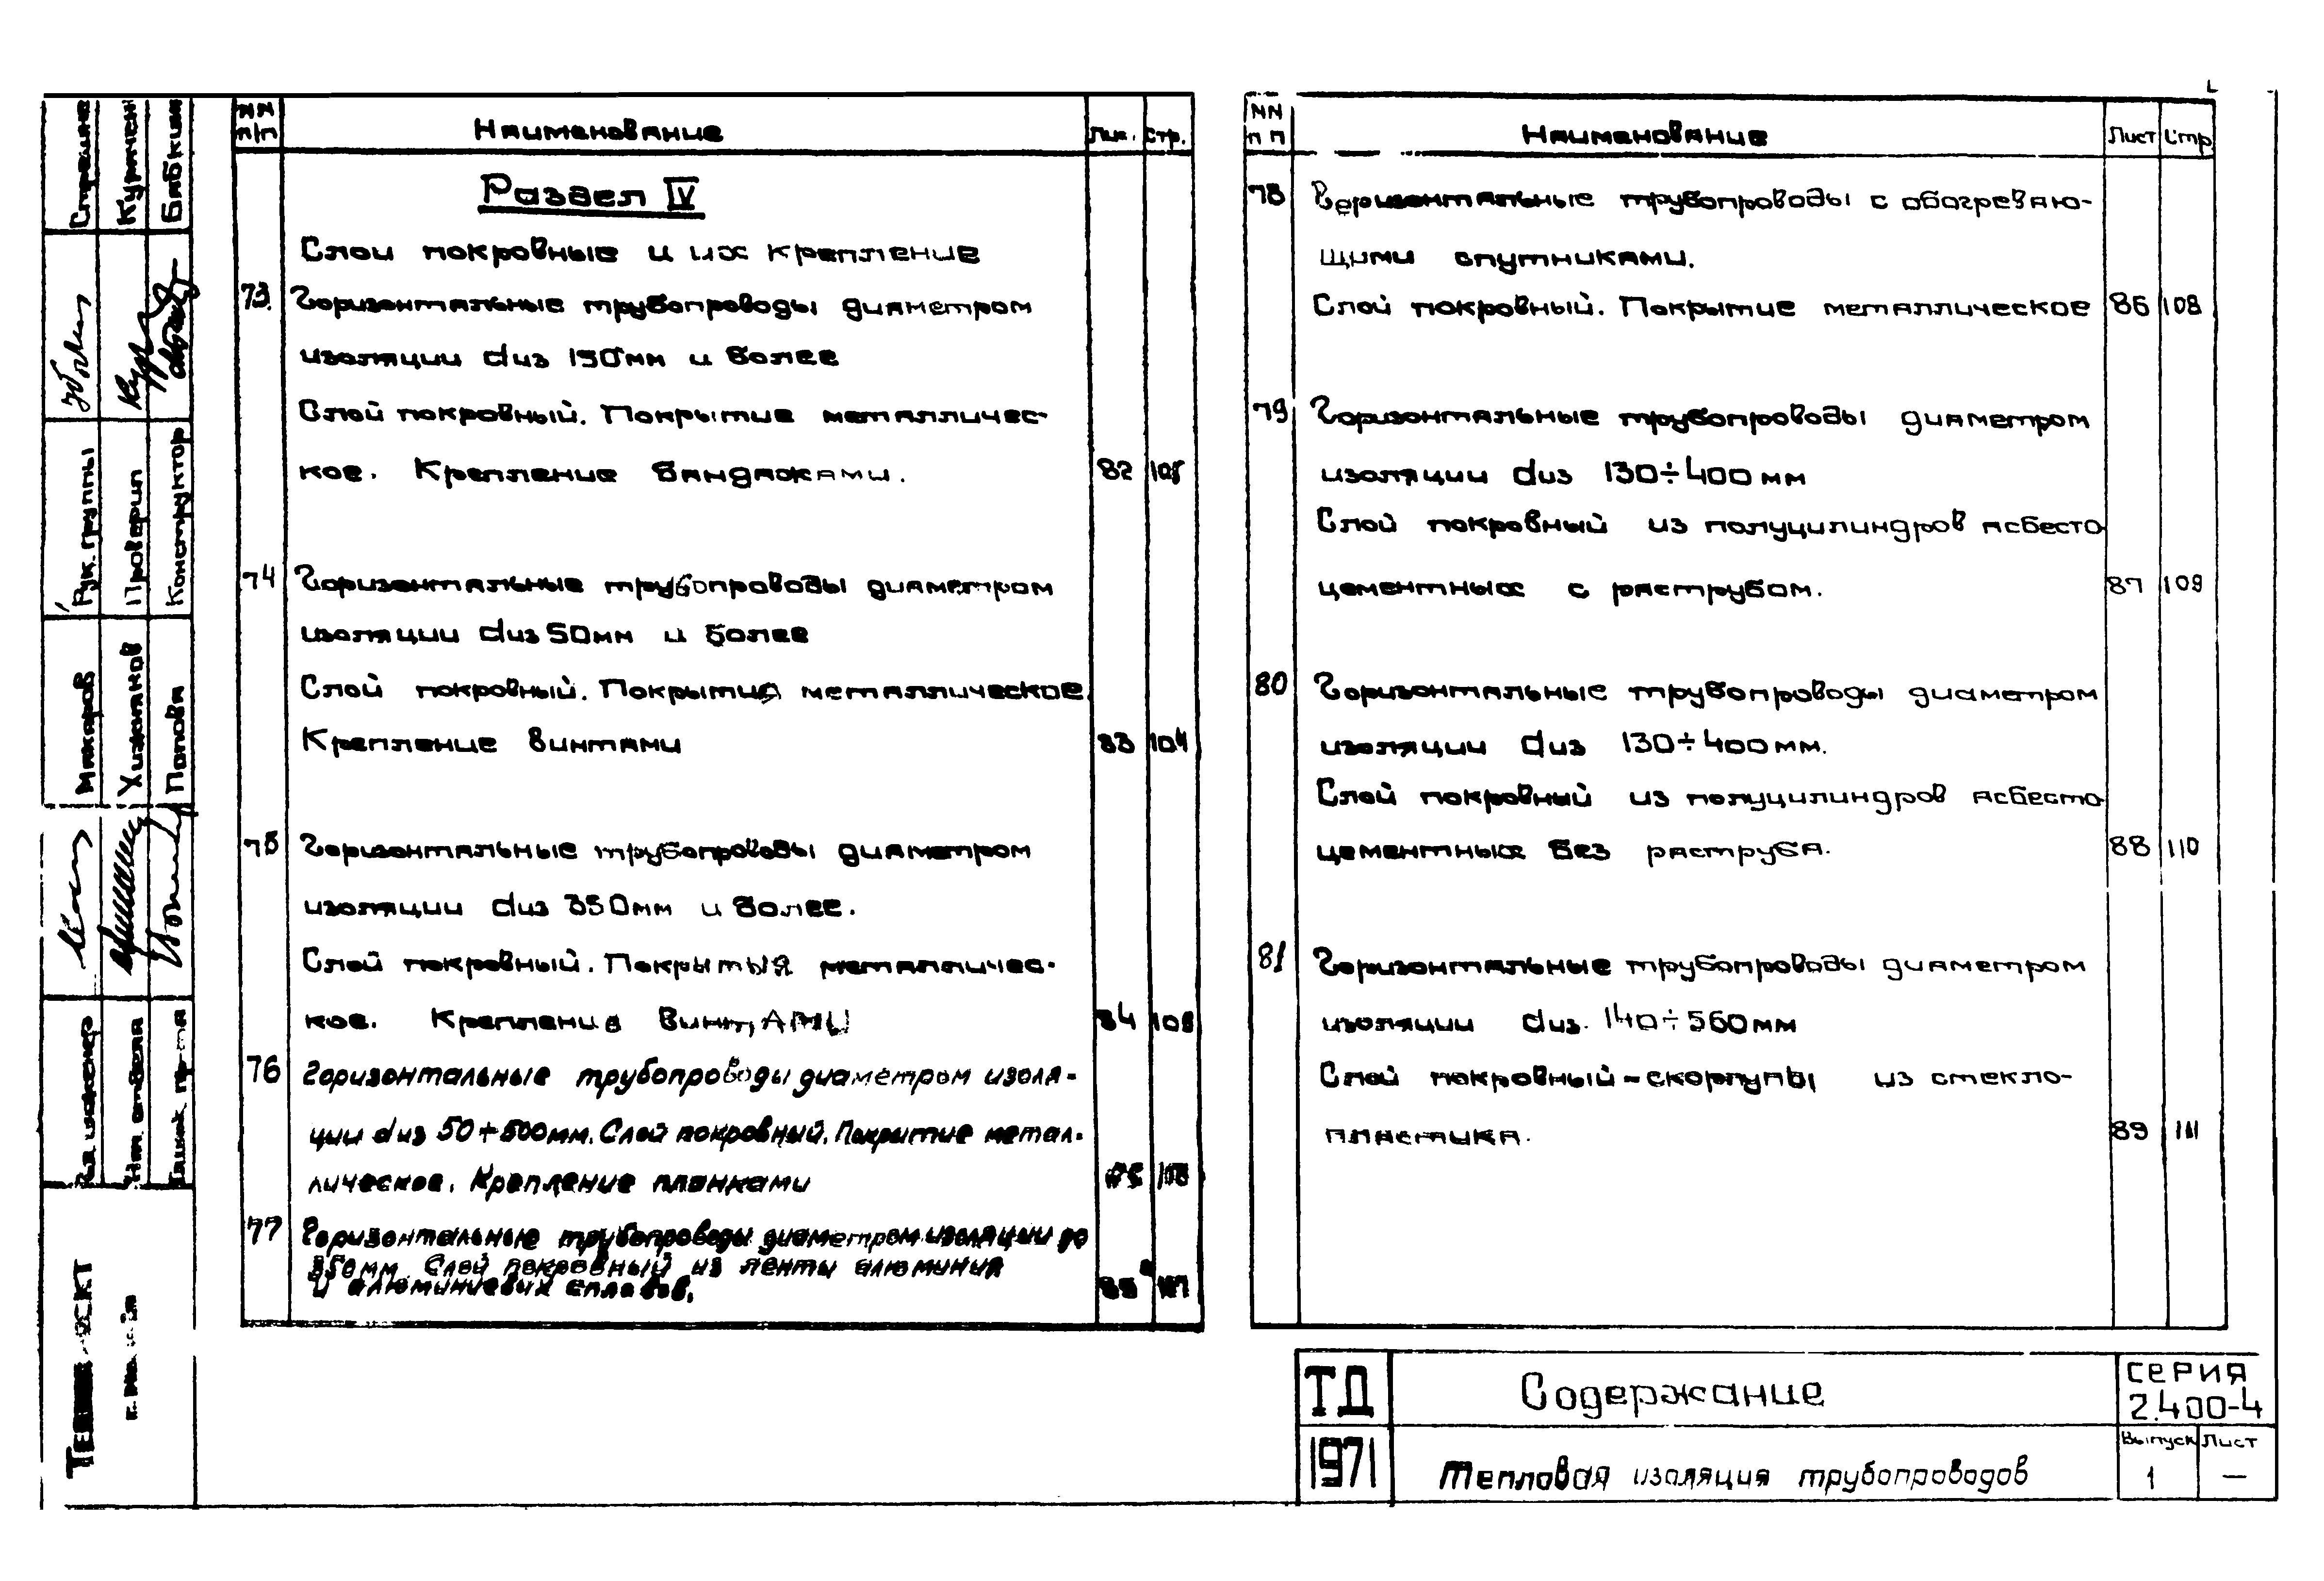 NN п/п Наименование Лис. Стр.
Раздел IV
Слои покровные и их крепление
73. Горизонтальные трубопроводы диаметром
изоляции dиз 150мм и более
Слой покровный. Покрытие металличес-
кое. Крепление бандажами. 82
74 Горизонтальные трубопроводы диаметром
изоляции dиз 50мм и более
Слой покровный. Покрытие металлическое.
Крепление винтами 83 104
75 Горизонтальные трубопроводы диаметром
изоляции dиз 350мм и более.
Слой покровный. Покрытия металличес-
кое. Крепление винтами 84
76 Горизонтальные трубопроводы диаметром изоля-
ции dиз 50÷500мм. Слой покровный. Покрытие метал-
лическое. Крепление планками
77 Горизонтальные трубопроводы диаметром изоляции до
350мм. Слой покровный из ленты алюминия
и алюминиевых сплавов.
NN п п Наименование Лист Стр
78 Горизонтальные трубопроводы с обогреваю-
щими спутниками.
Слой покровный. Покрытие металлическое 86 108
79 Горизонтальные трубопроводы диаметром
изоляции dиз 130÷400мм
Слой покровный из полуцилиндров асбесто
цементных с раструбом. 87 109
80 Горизонтальные трубопроводы диаметром
изоляции dиз 130÷400мм.
Слой покровный из полуцилиндров асбесто
цементных без раструба. 88 110
81 Горизонтальные трубопроводы диаметром
изоляции dиз. 140÷560мм
Слой покровный-скорлупы из стекло-
пластика. 89 111
ТД Содержание СЕРИЯ 2.400-4
1971 Тепловая изоляция трубопроводов Выпуск 1 Лист —
Рук. группы
Проверил
Конструктор
Макаров
Хижняков
Попова
Бабкина